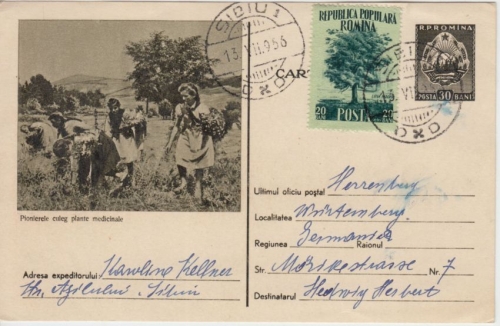 SIBIU 1
13.VII.956
REPUBLICA POPULARA
ROMINA
20
BANI
POSTA
20
BANI
R.P.ROMINA
POSTA 30 BANI
CAR
Pionierele culeg plante medicinale
Ultimul oficiu poștal Herrenberg
Localitatea Württemberg
Regiunea Germania Raionul
Str. Mörikestrasse Nr. 7
Destinatarul Hedwig Herbert
Adresa expeditorului Karoline Kellner
Str. Azilului. Sibiu